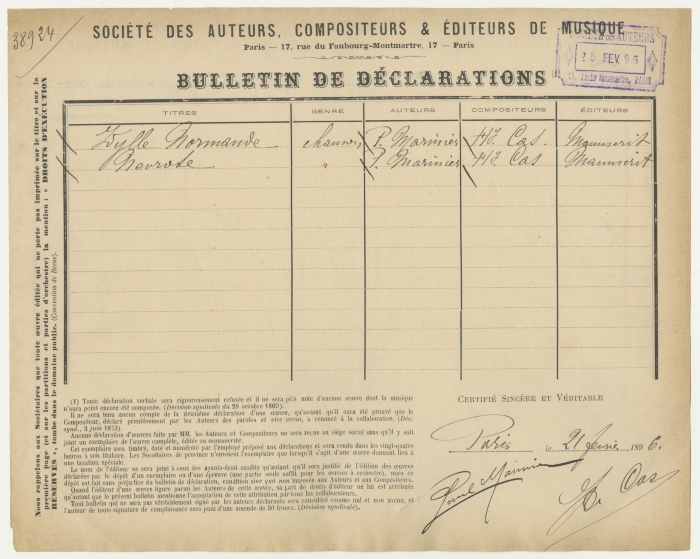 38924
SOCIÉTÉ DES AUTEURS, COMPOSITEURS & ÉDITEURS DE MUSIQUE
Paris — 17, rue du Faubourg-Montmartre, 17 — Paris
DES AUTEURS
25 FEV. 96
17, Faub. Montmartre, PARIS
BULLETIN DE DÉCLARATIONS
TITRES GENRE AUTEURS COMPOSITEURS ÉDITEURS
Idylle Normande chanson P. Marinier H. Cas. Manuscrit
Nevrose " P. Marinier H. Cas Manuscrit
Nous rappelons aux Sociétaires que toute œuvre éditée qui ne porte pas imprimée sur le titre et sur la
première page (et sur les partitions et parties d'orchestre) la mention : « DROITS D'EXÉCUTION
RÉSERVÉS », tombe dans le domaine public. (Convention de Berne).
(1) Toute déclaration verbale sera rigoureusement refusée et il ne sera pris note d'aucune œuvre dont la musique
n'aura point encore été composée. (Décision syndicale du 28 octobre 1869).
Il ne sera tenu aucun compte de la deuxième déclaration d'une œuvre, qu'autant qu'il aura été prouvé que le
Compositeur, déclaré primitivement par les Auteurs des paroles et vice versa, a renoncé à la collaboration. (Déc.
synd., 3 juin 1873).
Aucune déclaration d'œuvres faite par MM. les Auteurs et Compositeurs ne sera reçue au siège social sans qu'il y soit
joint un exemplaire de l'œuvre complète, éditée ou manuscrite.
Cet exemplaire sera timbré, daté et numéroté par l'employé préposé aux déclarations et sera rendu dans les vingt-quatre
heures à son titulaire. Les Secrétaires de province n'enverront l'exemplaire que lorsqu'il s'agit d'une œuvre donnant lieu à
une taxation spéciale.
Le nom de l'éditeur ne sera joint à ceux des ayants-droit audits qu'autant qu'il sera justifié de l'édition des œuvres
déclarées par le dépôt d'un exemplaire ou d'une épreuve (une partie seule suffit pour les œuvres à orchestre), mais ce
dépôt est fait sans préjudice du bulletin de déclaration, condition sine qua non imposée aux Auteurs et aux Compositeurs.
Quand l'éditeur d'une œuvre figure parmi les Auteurs de cette œuvre, sa part de droits d'éditeur ne lui est attribuée
qu'autant que le présent bulletin mentionne l'acceptation de cette attribution par tous les collaborateurs.
Tout bulletin qui ne sera pas véritablement signé par les auteurs déclarants sera considéré comme nul et non avenu, et
l'auteur de toute signature de complaisance sera puni d'une amende de 50 francs. (Décision syndicale).
CERTIFIÉ SINCÈRE ET VÉRITABLE
Paris le 21 février 1896.
Paul Marinier
H. Cas